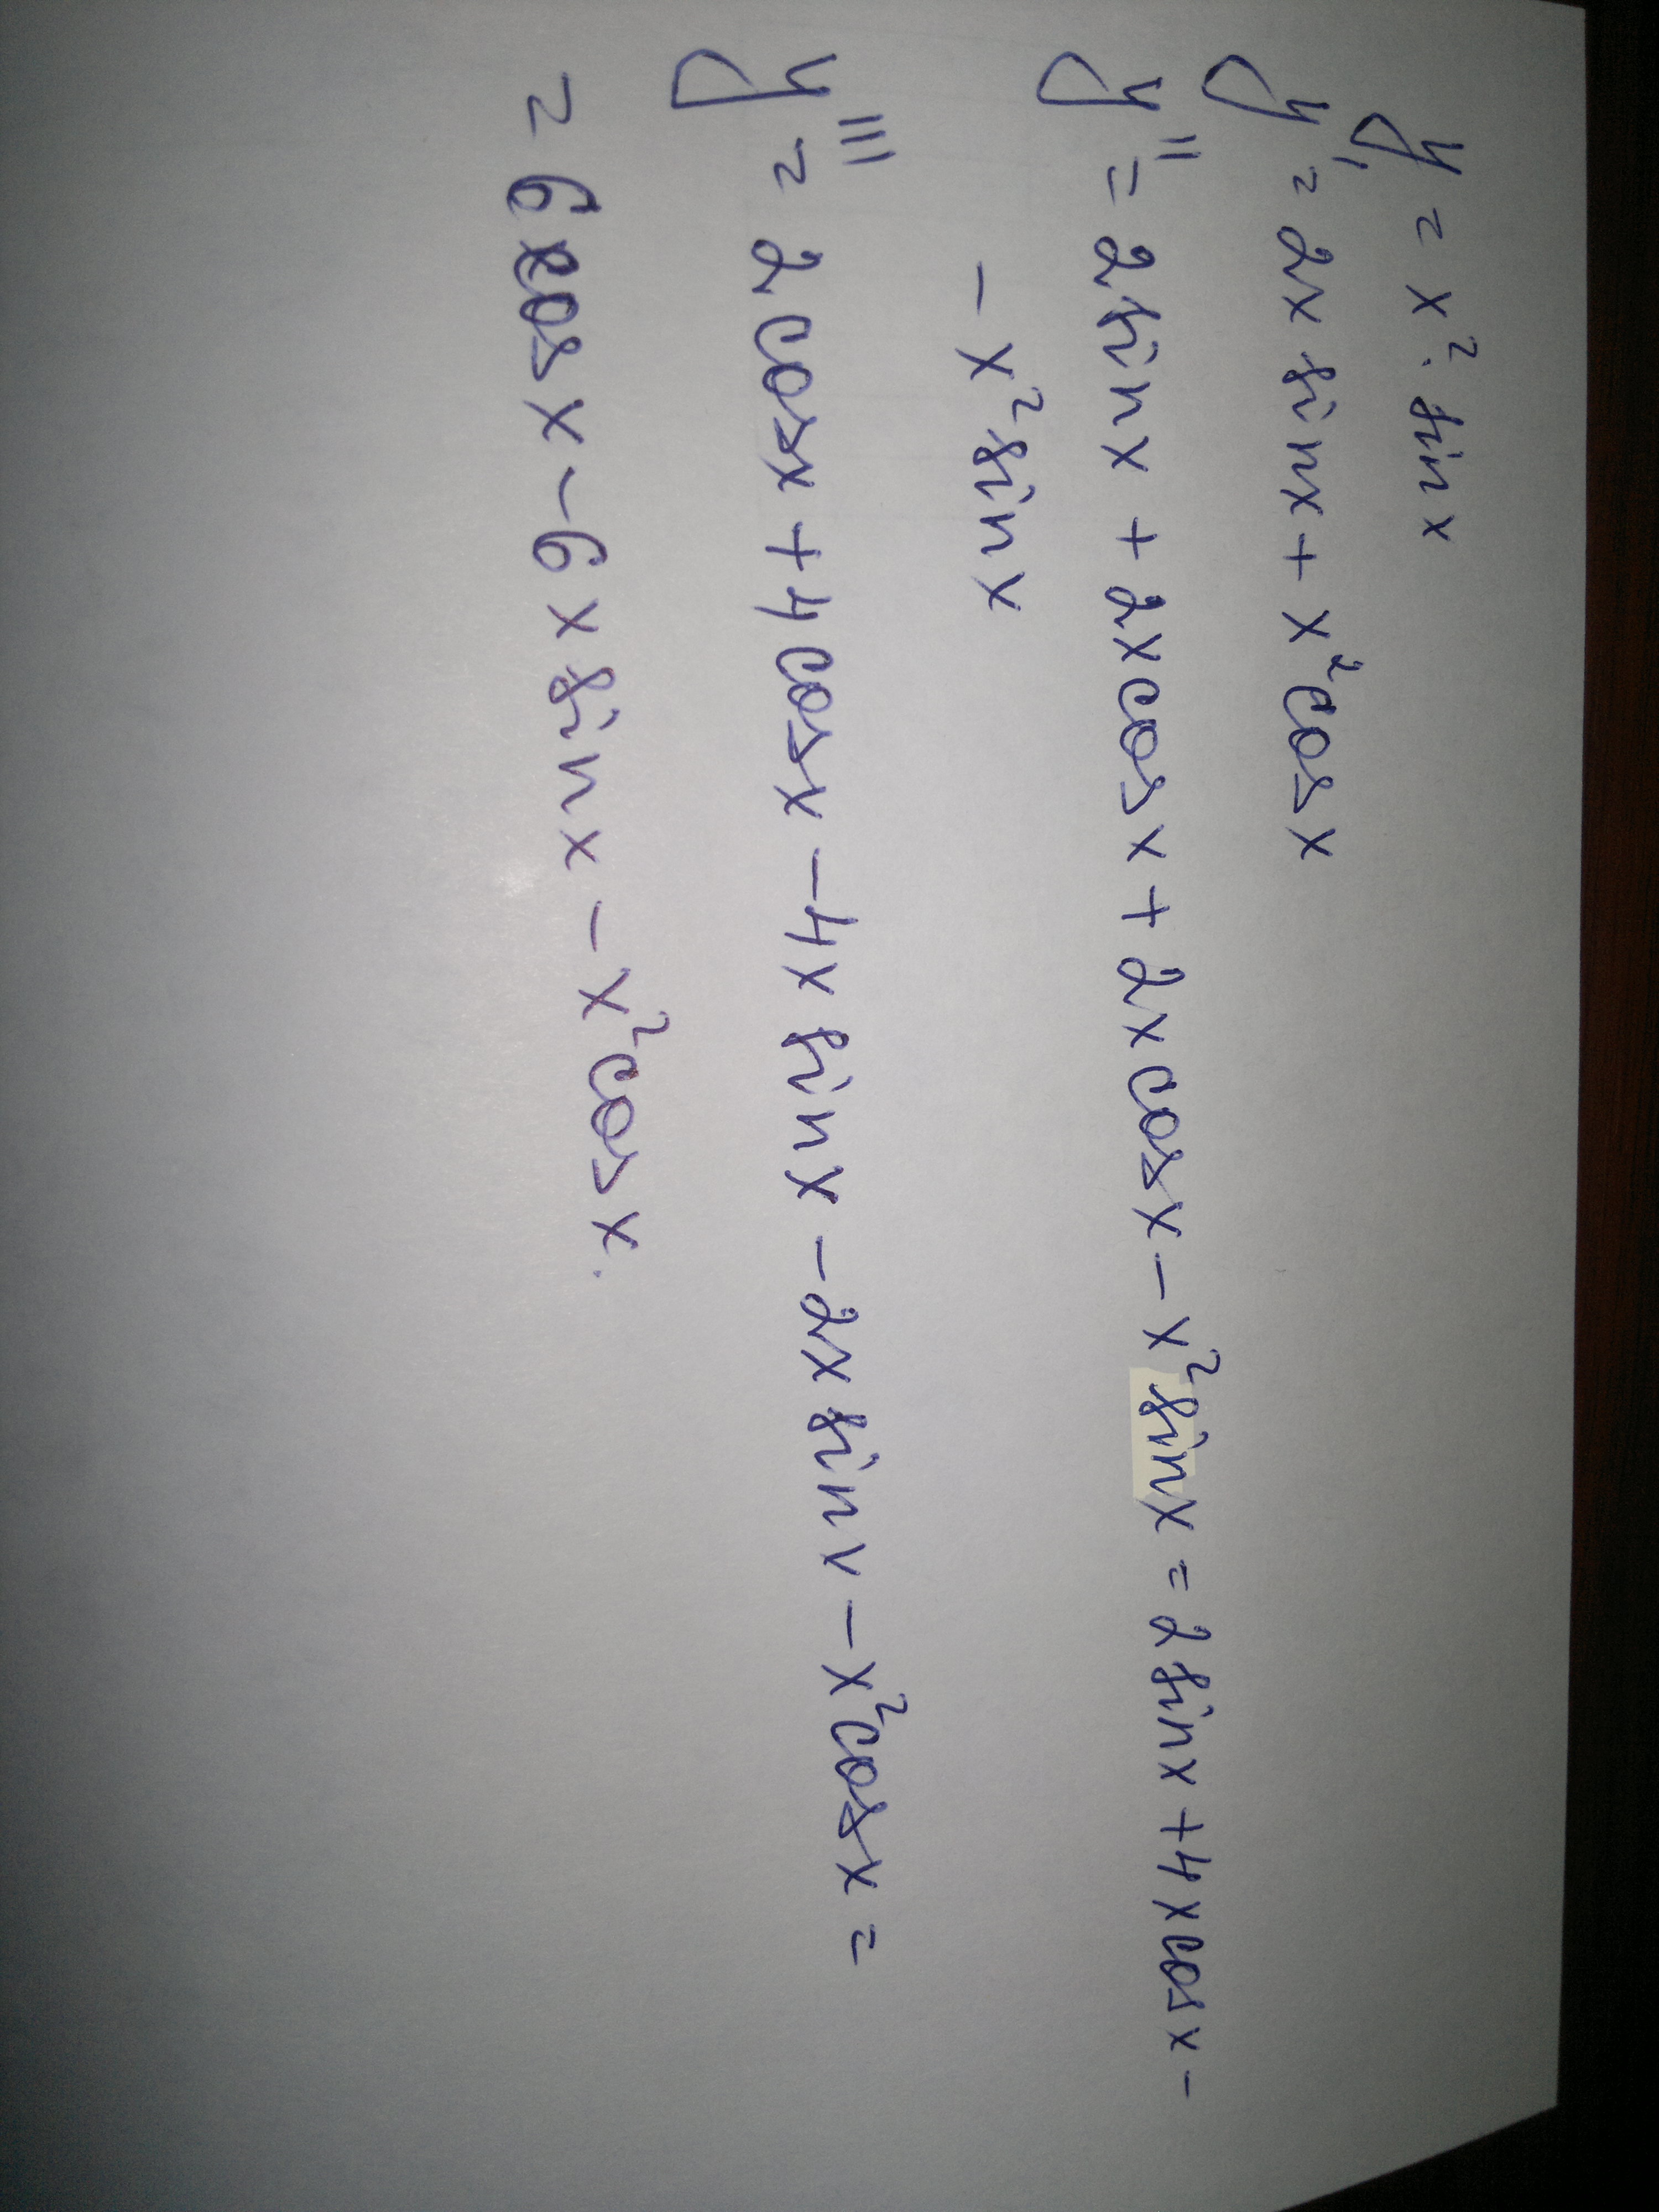 y = x²· sin x
y' = 2x sin x + x² cos x
y'' = 2 sin x + 2x cos x + 2x cos x – x² sin x = 2 sin x + 4x cos x –
– x² sin x
y''' = 2 cos x + 4 cos x – 4x sin x – 2x sin x – x² cos x =
= 6 cos x – 6 x sin x – x² cos x.